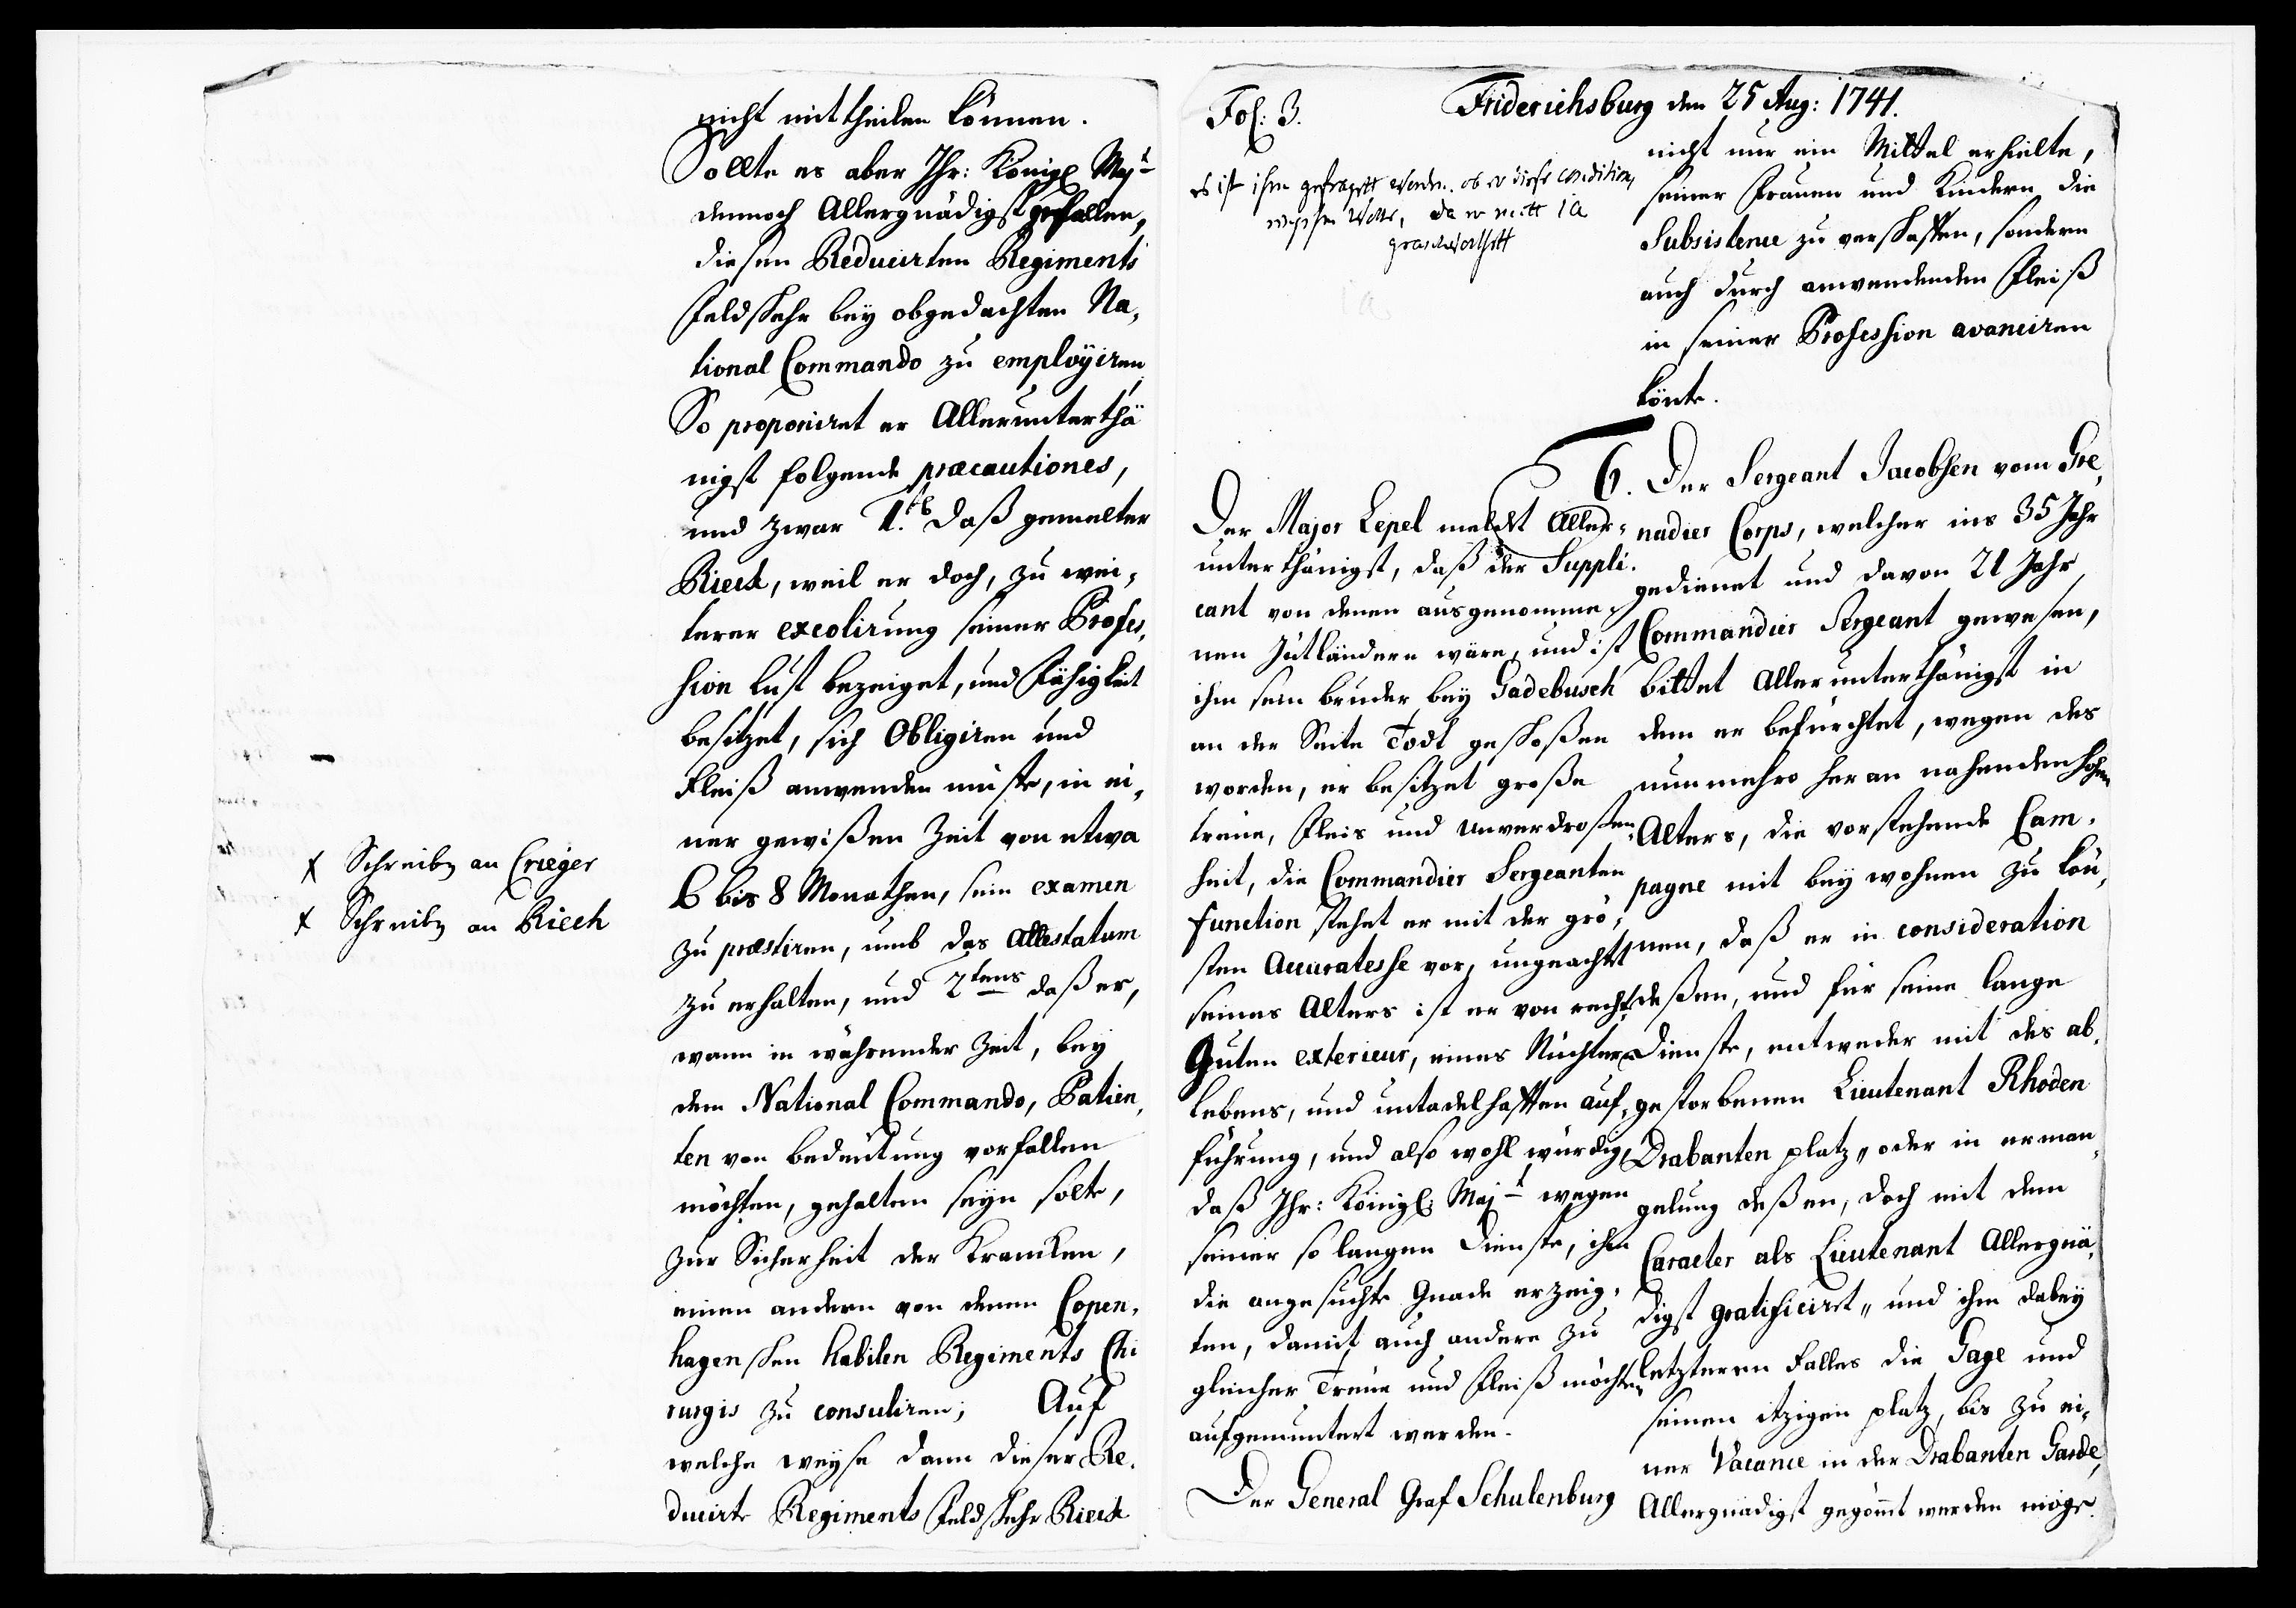 nicht mittheilen können.
Sollte es aber Ihr: Königl Maj
dennoch Allergnädigst gefallen,
diesen Reducirten Regiments
Feldscher bey obgedachten Na,
tional Commando zu employiren
So proponiret er Allerunterthä
nigst folgende præcautiones,
und zwar 1. daß gemelter
Rieck, weil er doch, zu wei,
terer excolirung seiner Profes,
sion lust bezeiget, und Fähigkeit
besitzet, sich Obligiren und
Fleiß anwenden müste, in ei,
ner gewißen Zeit von etwa
6 bis 8 Monathen, sein examen
zu præstiren, umb das Attestatum
zu erhalten, und 2tens daß er,
wann in währender Zeit, bey
dem National Commando, Patien,
ten von bedeütung vorfallen
möchten, gehalten seyn solte,
zur Sicherheit der Krancken,
einen andern von denen Copen,
hagenschen habilen Regiments Chi
rurgis zu consuliren; Auf
welche weyse dann dieser Re,
ducirte Regiments Feldscher Rieck
+ Schreiben an Crüger
+ Schreiben an Rieck
Fol: 3.
Friderichsburg den 25 Aug: 1741.
es ist ihm gefragtt worden. ob er diese condition,
da er mitt ia
nicht nur ein Mittel erhielte,
seiner Frauen und Kindern die
Subsistence zu verschaffen, sondern
auch durch anwendenden Fleiß
in seiner Profession avanciren
könte.
Der Major Lepel meldet Aller,
unterthänigst, daß der Suppli,
cant von denen ausgenomme,
nen Jütländern wäre, und ist
ihm sein bruder bey Gadebusch
an der Seite Todt geschoßen
worden, er besitzet große
treüe, Fleis und unverdroßen,
heit, die Commandier Sergeanten
function stehet er mit der grö,
sten Accuratesse vor, ungeachtet
seines Alters ist er von recht
Guten exterieur, eines Nüchtern
lebens, und untadelhafften auf,
führung, und also wohl würdig,
daß Ihr: Königl: Maj wegen
seiner so langen Dienste, ihm
die angesuchte Gnade erzeig,
ten, damit auch andere zu
gleicher Treüe und Fleiß möchten
aufgemuntert werden.
Der General Graf Schulenburg
6. Der Sergeant Jacobsen vom Gre,
nadier Corps, welcher ins 35 Jahr
gedienet und davon 21 Jahr
Commandier Sergeant gewesen,
bittet Allerunterthänigst in
dem er befürchtet, wegen des
nunmehro heran nahenden hohen
Alters, die vorstehende Cam,
pagne mit bey wohnen zu kön,
nen, daß er in consideration
deßen, und für seine lange
Dienste, entweder mit des ab,
gestorbenen Lieutenant Rhoden
Drabanten platz, oder in erman,
gelung deßen, doch mit dem
Caracter als Lieutenant Allergnä,
digst gratificiret, und ihm dabey
letzteren Falles die Gage und
seinen itzigen platz, bis zu ei,
ner Vacance in der Drabanten Garde,
Allergnädigst gegönnt werden möge.